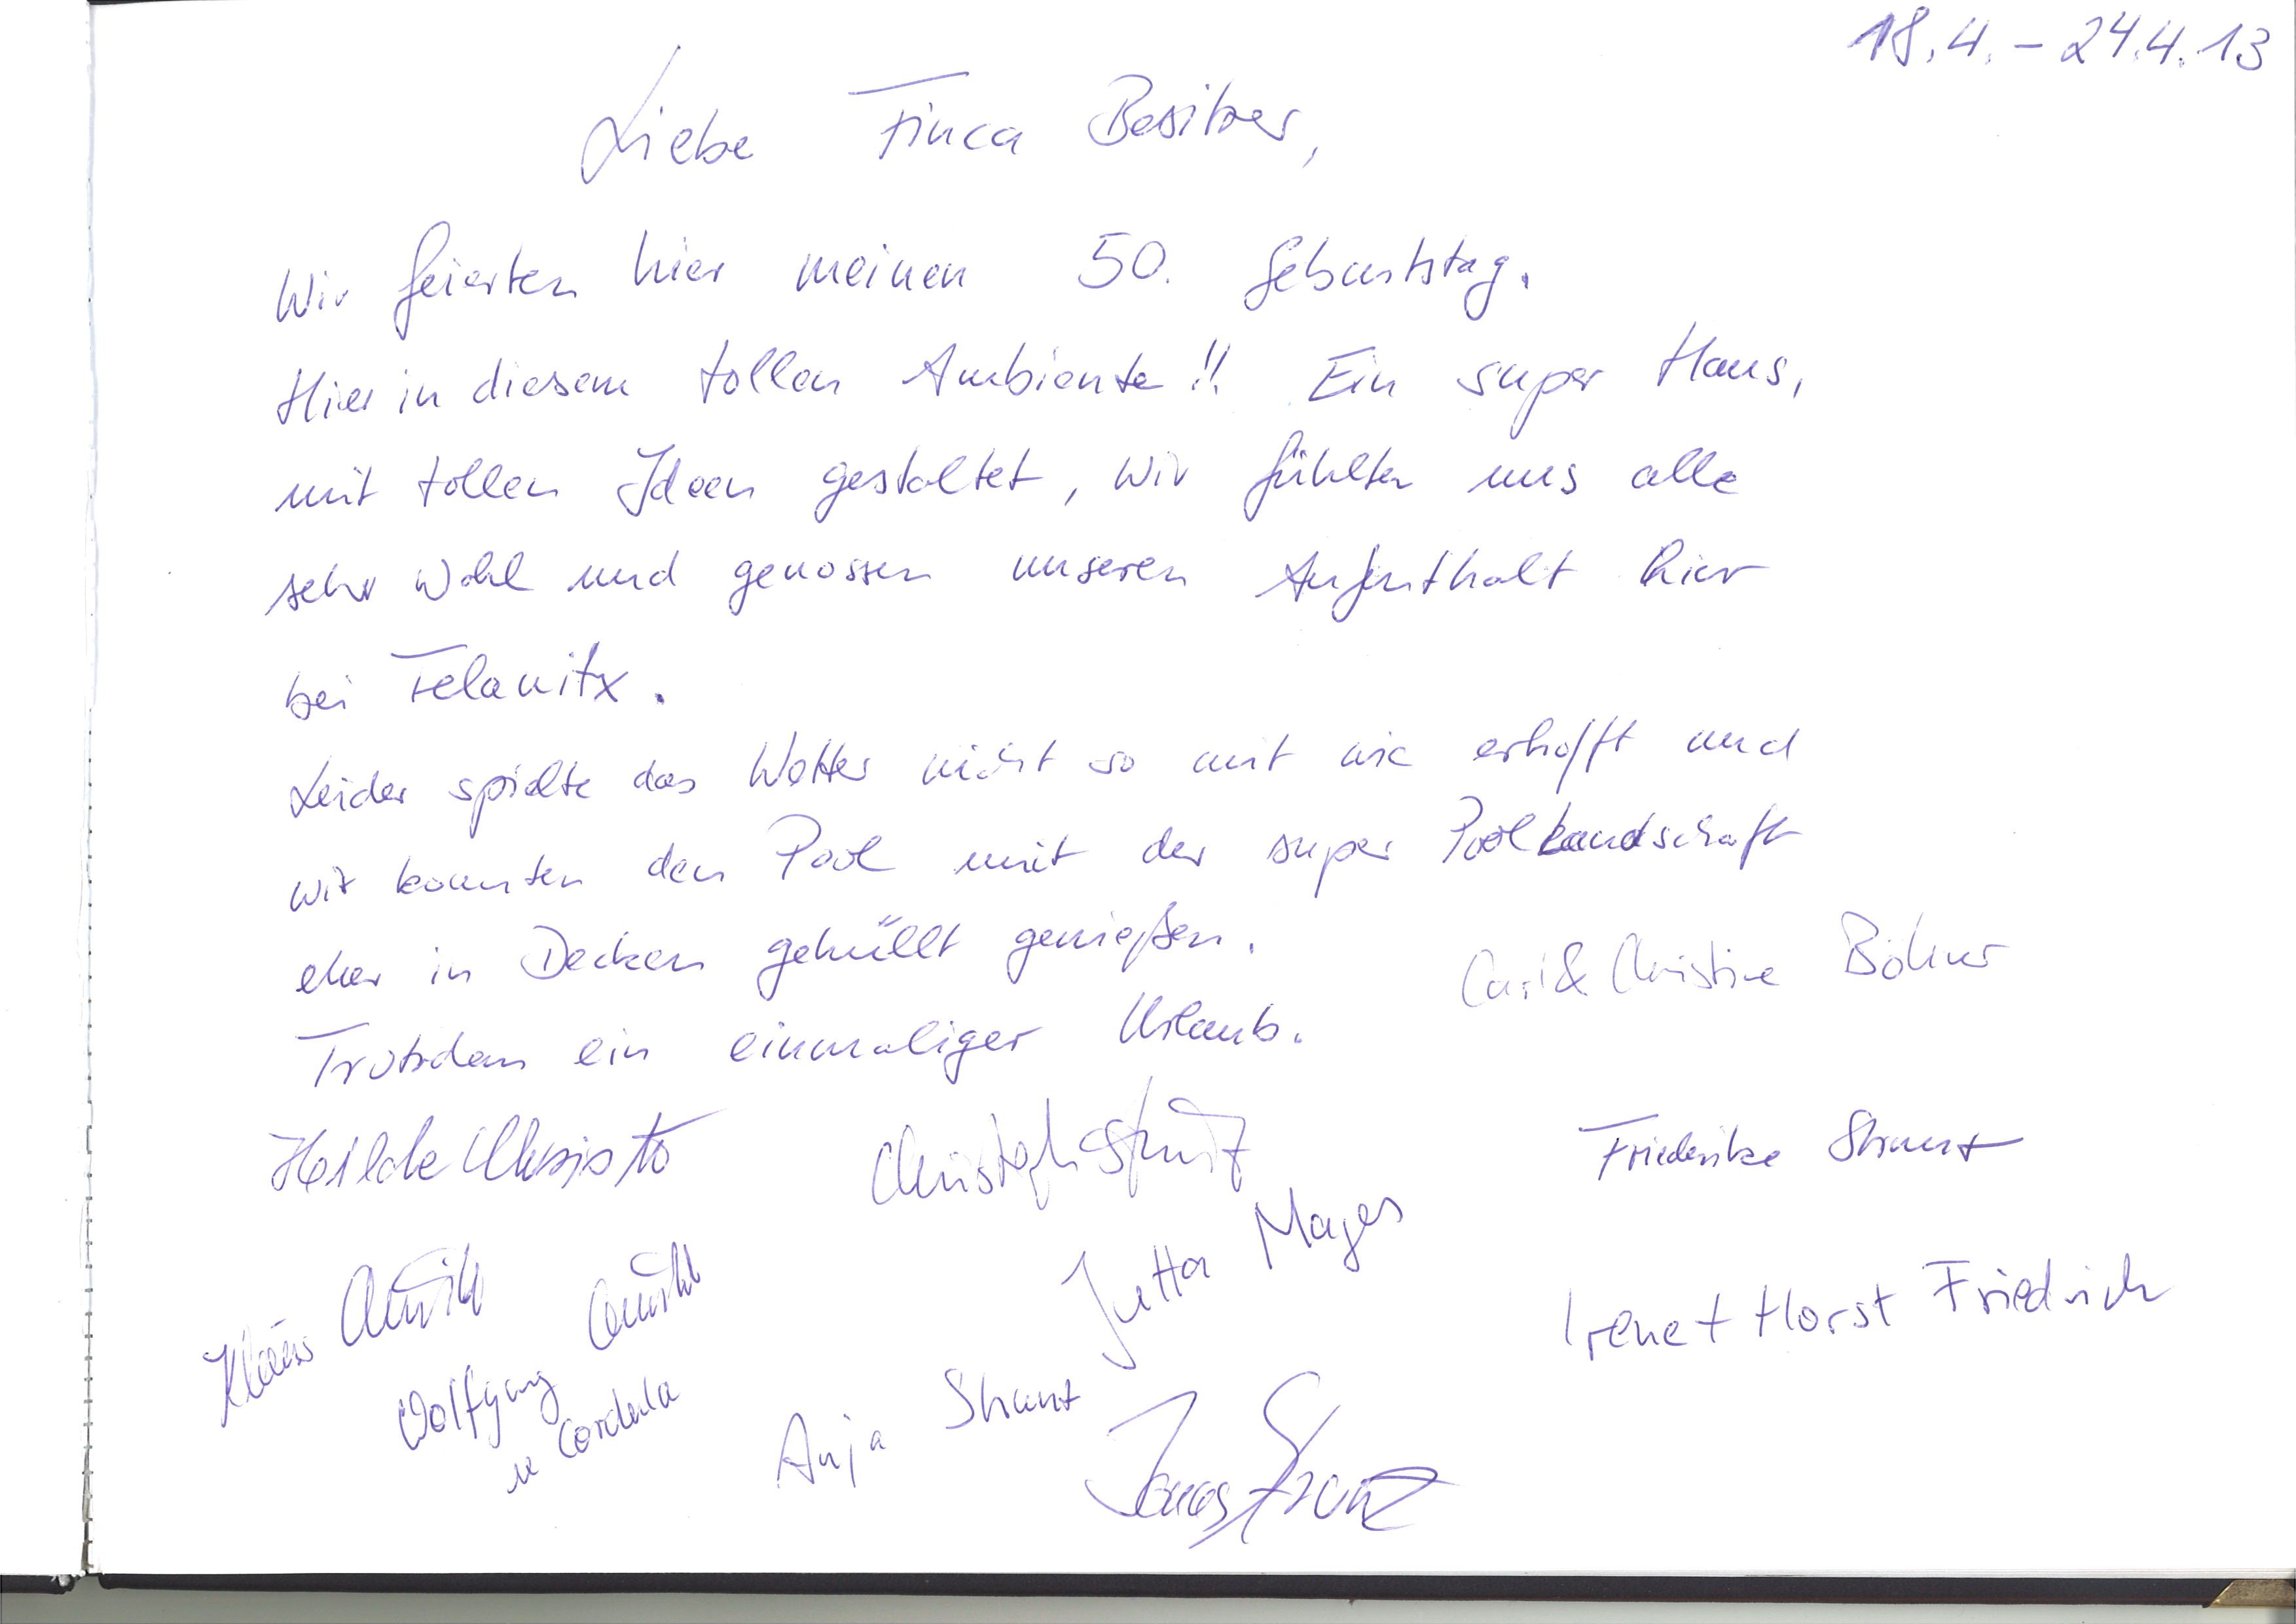 18.4. - 24.4.13
Liebe Finca Besitzer,
Wir feierten hier meinen 50. Geburtstag.
Hier in diesem tollen Ambiente!! Ein super Haus,
mit tollen Ideen gestaltet, wir fühlten uns alle
sehr wohl und genossen unseren Aufenthalt hier
bei Felanitx.
Leider spielte das Wetter nicht so mit wie erhofft und
wir konnten den Pool mit der super Poollandschaft
eher in Decken gehüllt genießen.
Trotzdem ein einmaliger Urlaub.
& Christine Böhner
Hilde
Christoph
Friederike
Jutta Mayer
Klaus
Irene + Horst Friedrich
Wolfgang
u Cordula
Anja
Jonas